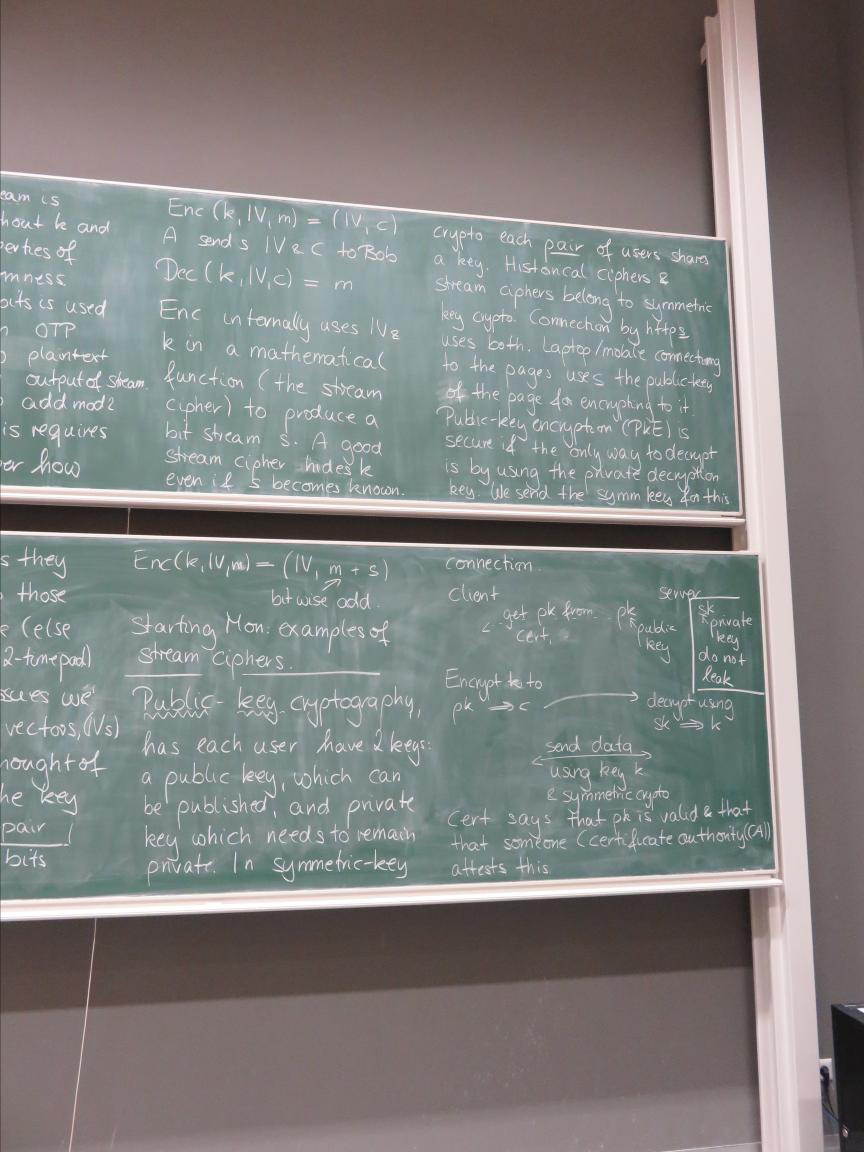 eam is
hout k and
erties of
mness
bits is used
OTP
plaintext
output of stream.
add mod 2
is requires
er how
Enc (k, IV, m) = (IV, c)
A sends IV & C to Bob
Dec (k, IV, c) = m
Enc internally uses IV &
k in a mathematical
function (the stream
cipher) to produce a
bit stream s. A good
stream cipher hides k
even if s becomes known.
crypto each pair of users share
a key. Historical ciphers &
stream ciphers belong to symmetric
key crypto. Connection by https
uses both. Laptop/mobile connecting
to the pages uses the public-key
of the page for encrypting to it.
Public-key encryption (PKE) is
secure if the only way to decrypt
is by using the private decryption
key. We send the symm key for this
s they
those
e (else
2-time pad)
ssues we
vectors, (IVs)
hought of
he key
pair
bits
Enc(k, IV, m) = (IV, m + s)
bitwise add.
Starting Mon: examples of
stream ciphers.
Public-key cryptography,
has each user have 2 keys:
a public key, which can
be published, and private
key which needs to remain
private. In symmetric-key
connection.
Client server
get pk from pk sk
cert, public private
key key
do not
leak
Encrypt k to
pk ⇒ c decrypt using
sk ⇒ k
send data
using key k
& symmetric crypto
Cert says that pk is valid & that
that someone (certificate authority (CA))
attests this